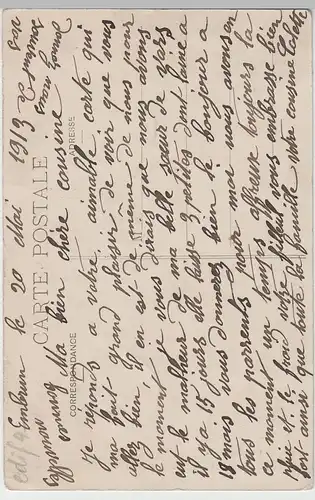 Embrun le 20 Mai 1913
CARTE POSTALE
CORRESPONDANCE
ADRESSE
Ma bien chère cousine
Je réponds a votre aimable carte qui
ma fait grand plaisir de voir que vous
allez bien, il en est de même de nous pour
le moment, je vous dirais que nous avons
eut le malheur de ma belle sœur de
il y a 15 jours elle laisse 2 petites dont l'aînée a
18 mois vous donnerez bien le bonjour a
tous les parents pour moi nous avons en
ce moment un temps affreux toujours la
pluie et le froid votre filleul vous embrasse bien
fort ainsi que toute la famille votre cousine